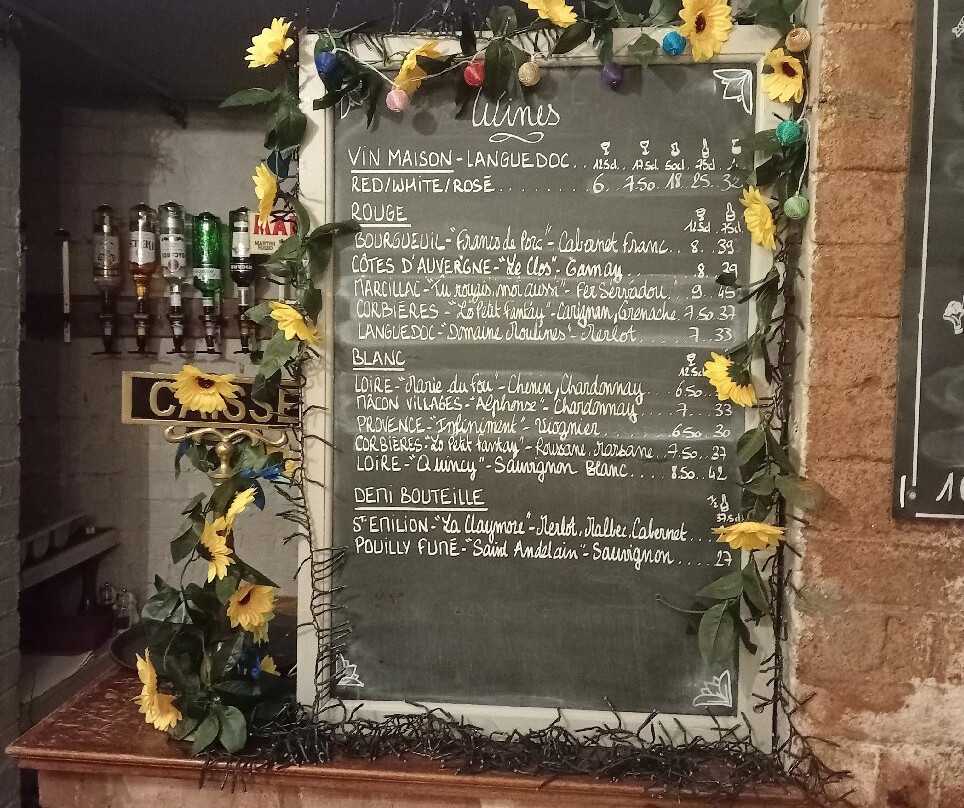 Wines
VIN MAISON - LANGUEDOC... 12.5cl. 17.5cl. 50cl. 75cl.
RED/WHITE/ROSÉ ........ 6. 7.50 18. 25. 32
ROUGE
12.5cl 75cl
BOURGUEIL - "Franc de Porc" - Cabernet Franc... 8.. 39
CÔTES D'AUVERGNE - "Le Clos" - Gamay ........ 8.. 29
MARCILLAC - "Tu rougis, moi aussi" - Fer Servadou. 9.. 45
CORBIÈRES - "Le Petit Fantay" - Carignan, Grenache. 7.50. 37
LANGUEDOC - "Domaine Moulines" - Merlot...... 7... 33
BLANC
12.5cl
LOIRE - "Marie du Fou" - Chenin, Chardonnay.... 6.50..
MÂCON VILLAGES - "Alphonse" - Chardonnay.... 7... 33
PROVENCE - "Infiniment" - Viognier....... 6.50.. 30
CORBIÈRES - "Le Petit Fantay" - Roussane, Marsane. 7.50.. 37
LOIRE - "Quincy" - Sauvignon Blanc.... 8.50.. 42
DEMI BOUTEILLE
½
37.5cl
ST EMILION - "La Claymore" - Merlot, Malbec, Cabernet..
POUILLY FUMÉ - "Saint Andelain" - Sauvignon.... 27
CAISSE
MARTINI